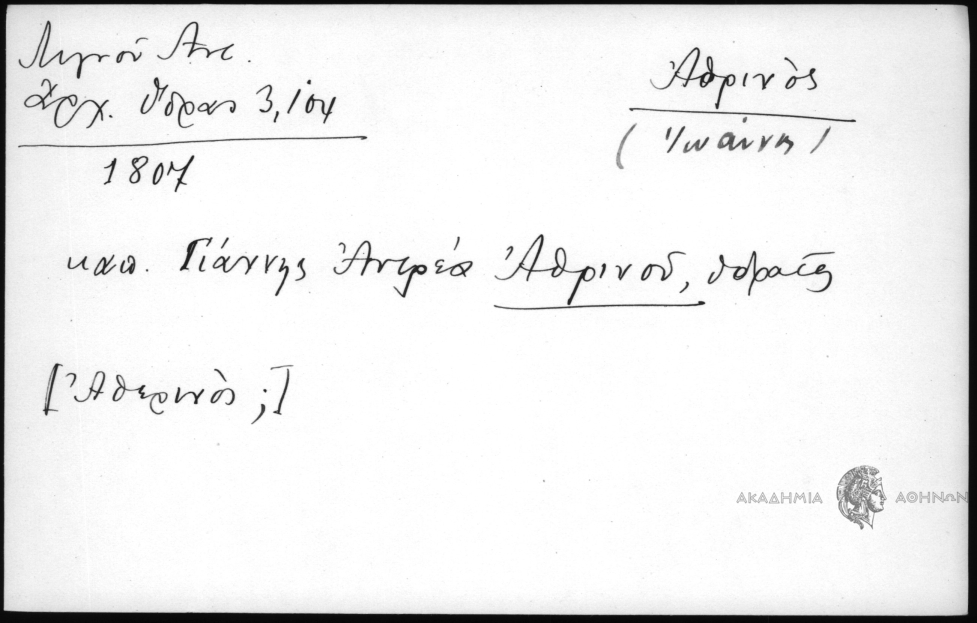 Λιγνοῦ Ἀντ.
Ἀρχ. Ὕδρας 3, 104
1807
Ἀθρινὸς
(Ἰωάννης)
καπ. Γιάννης Ἀντρέα Ἀθρινοῦ, ὑδραῖος
[Ἀθερινὸς ;]
ΑΚΑΔΗΜΙΑ ΑΘΗΝΩΝ